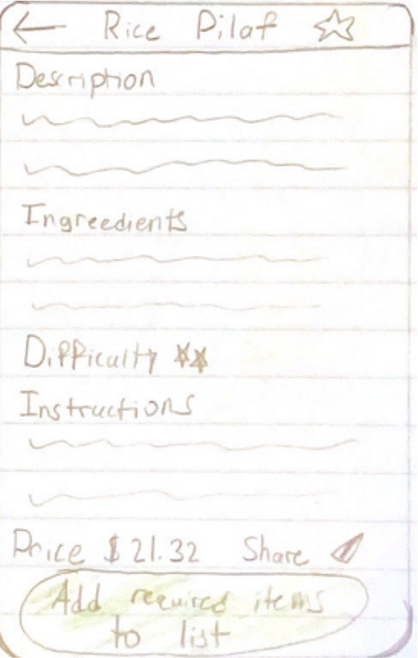 Rice Pilaf
Description
Ingreedients
Difficulty
Instructions
Price $21.32 Share
Add required items
to list